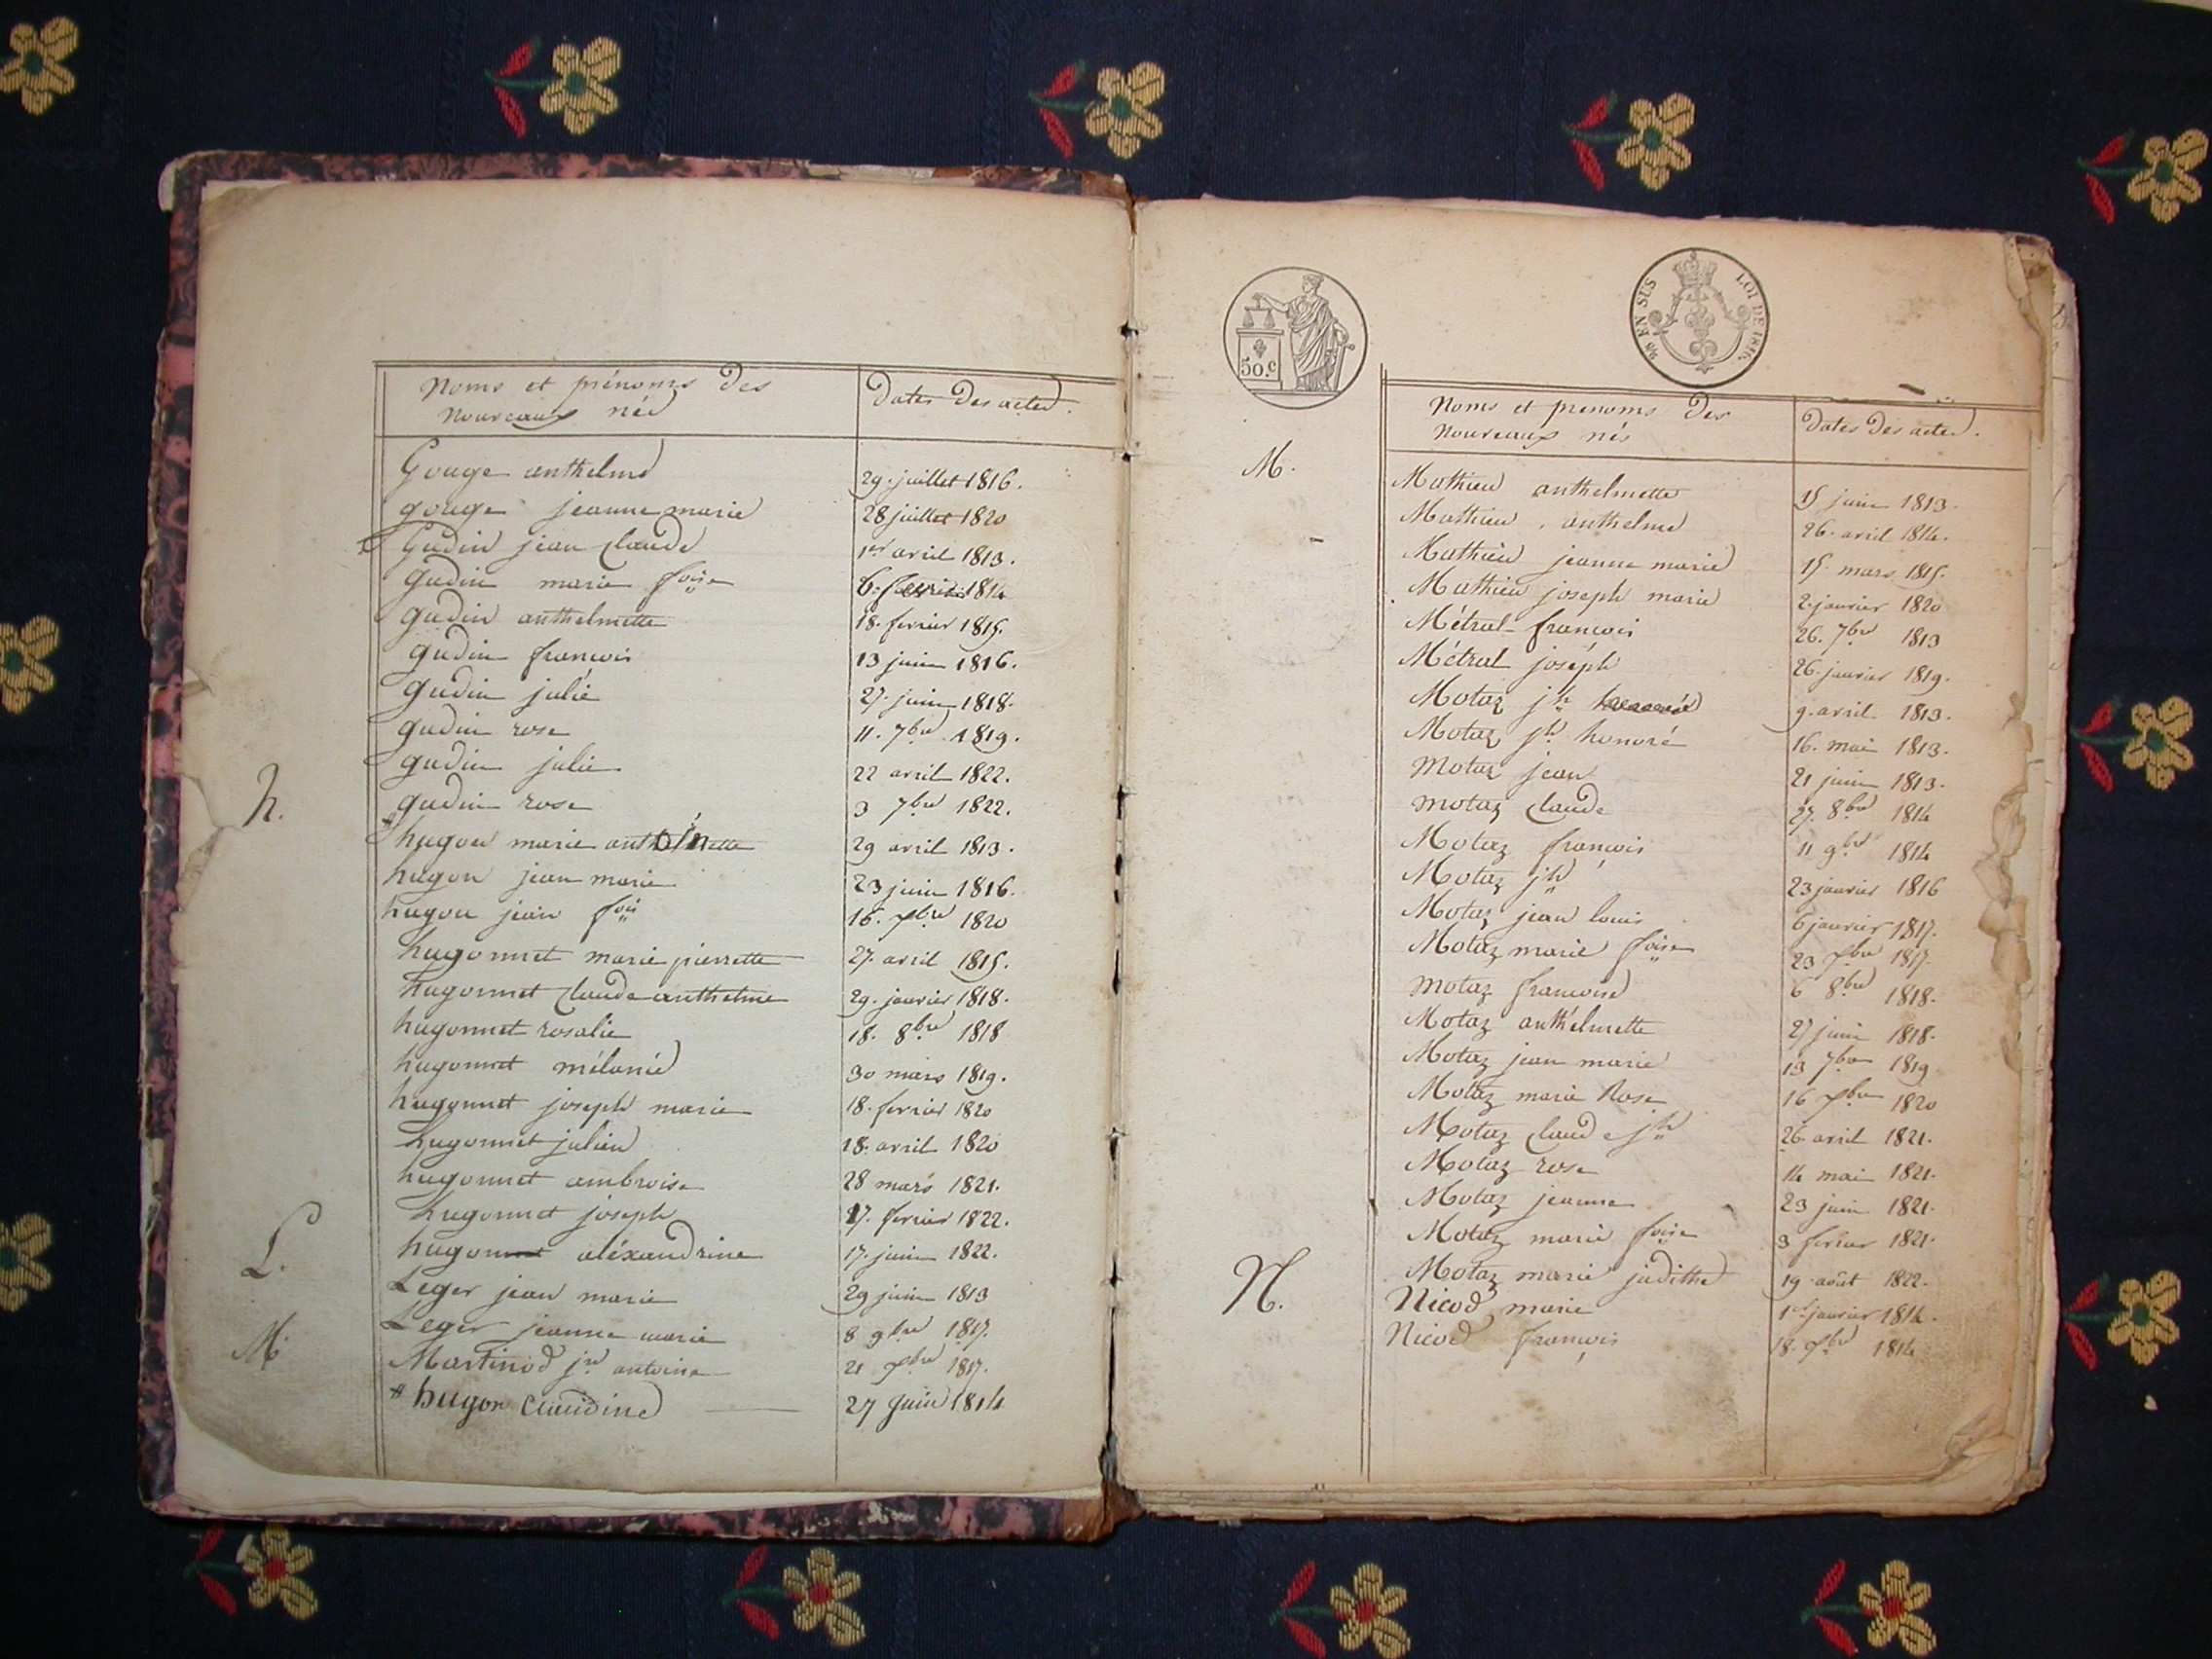 Noms et prénoms des
nouveaux nés
Dates des actes.
Gouge anthelme 29. juillet 1816.
gouge jeanne marie 28 juillet 1820
Gudin jean claude 1er avril 1813.
gudin marie foise 6. 1814
gudin anthelmette 18. fevrier 1815.
gudin françois 13 juin 1816.
gudin julie 27. juin 1818.
gudin rose 11. 7bre 1819.
gudin julie 22 avril 1822.
h.
gudin rose 3 7bre 1822.
hugon marie 29 avril 1813.
hugon jean marie 23 juin 1816.
hugon jean fois 16. 1820
hugonnet marie pierrette 27. avril 1815.
hugonnet claude anthelme 29. janvier 1818.
hugonnet rosalie 18. 8bre 1818
hugonnet mélanie 30 mars 1819.
hugonnet joseph marie 18. fevrier 1820
hugonnet julien 18. avril 1820
hugonnet ambroise 28 mars 1821.
hugonnet joseph 27. fevrier 1822.
L.
hugonnet aléxandrine 17. juin 1822.
Leger jean marie 29 juin 1813
Leger jeanne marie 8 9bre 1817.
M.
Martinod jh antoine 21 1817.
* hugon Claudine 27 Juin 1814
50.c
EN SUS LOI DE 1816.
Noms et prenoms des
nouveaux nés
Dates des actes.
M.
Mathieu anthelmette 15 juin 1813.
Mathieu anthelme 26. avril 1814.
Mathieu jeanne marie 15. mars 1815.
Mathieu joseph marie 2. janvier 1820
Métral françois 26. 7bre 1813
Métral joséph 26. janvier 1819.
Motaz jh 9. avril 1813.
Motaz jh honoré 16. mai 1813.
Motaz jean 21 juin 1813.
motaz claude 27. 8bre 1814
Motaz françois 11 9bre 1814
Motaz jh 23 janvier 1816
Motaz jean louis 6 janvier 1817.
Motaz marie foise 23 1817.
motaz francoise 6 8bre 1818.
Motaz anthelmette 27 juin 1818.
Motaz jean marie 13 7bre 1819
Motaz marie Rose 16 1820
Motaz claude jh 26. avril 1821.
Motaz rose 14 mai 1821.
Motaz jeanne 23 juin 1821.
Motaz marie foise 3 fevrier 1821.
Motaz marie judithe 19. août 1822.
N.
Nicod marie 1er janvier 1814.
Nicod françois 18. 1814